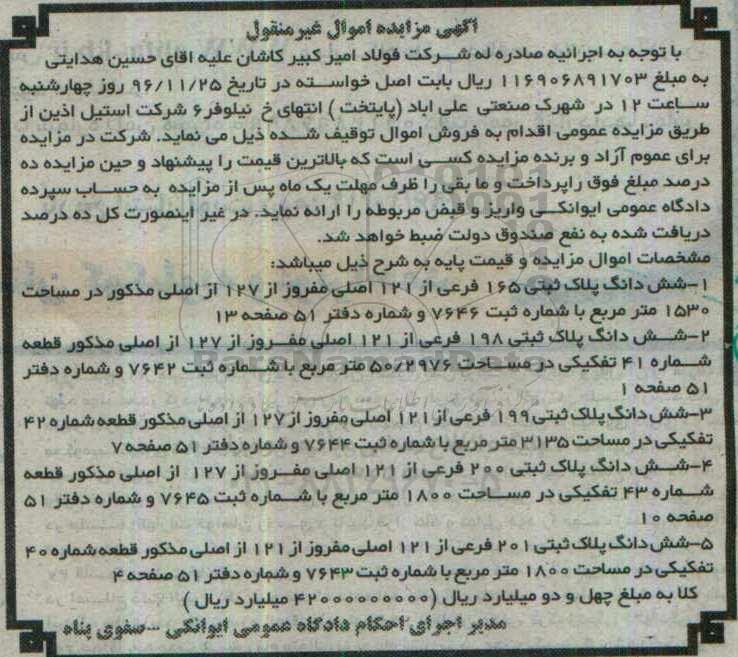 آگهی مزایده اموال غیرمنقول
با توجه به اجرائیه صادره له شرکت فولاد امیر کبیر کاشان علیه اقای حسین هدایتی
به مبلغ ۱۱۶۹۰۶۸۹۱۷۰۳ ریال بابت اصل خواسته در تاریخ ۹۶/۱۱/۲۵ روز چهارشنبه
ساعت ۱۲ در شهرک صنعتی علی اباد (پایتخت) انتهای خ نیلوفر۶ شرکت استیل اذین از
طریق مزایده عمومی اقدام به فروش اموال توقیف شده ذیل می نماید. شرکت در مزایده
برای عموم آزاد و برنده مزایده کسی است که بالاترین قیمت را پیشنهاد و حین مزایده ده
درصد مبلغ فوق راپرداخت و ما بقی را ظرف مهلت یک ماه پس از مزایده به حساب سپرده
دادگاه عمومی ایوانکی واریز و قبض مربوطه را ارائه نماید. در غیر اینصورت کل ده درصد
دریافت شده به نفع صندوق دولت ضبط خواهد شد.
مشخصات اموال مزایده و قیمت پایه به شرح ذیل میباشد:
۱-شش دانگ پلاک ثبتی ۱۶۵ فرعی از ۱۲۱ اصلی مفروز از ۱۲۷ از اصلی مذکور در مساحت
۱۵۳۰ متر مربع با شماره ثبت ۷۶۴۶ و شماره دفتر ۵۱ صفحه ۱۳
۲-شش دانگ پلاک ثبتی ۱۹۸ فرعی از ۱۲۱ اصلی مفروز از ۱۲۷ از اصلی مذکور قطعه
شماره ۴۱ تفکیکی در مساحت ۵۰/۲۹۷۶ متر مربع با شماره ثبت ۷۶۴۲ و شماره دفتر
۵۱ صفحه ۱
۳-شش دانگ پلاک ثبتی ۱۹۹ فرعی از ۱۲۱ اصلی مفروز از ۱۲۷ از اصلی مذکور قطعه شماره ۴۲
تفکیکی در مساحت ۳۱۳۵ متر مربع با شماره ثبت ۷۶۴۴ و شماره دفتر ۵۱ صفحه ۷
۴-شش دانگ پلاک ثبتی ۲۰۰ فرعی از ۱۲۱ اصلی مفروز از ۱۲۷ از اصلی مذکور قطعه
شماره ۴۳ تفکیکی در مساحت ۱۸۰۰ متر مربع با شماره ثبت ۷۶۴۵ و شماره دفتر ۵۱
صفحه ۱۰
۵-شش دانگ پلاک ثبتی ۲۰۱ فرعی از ۱۲۱ اصلی مفروز از ۱۲۱ از اصلی مذکور قطعه شماره ۴۰
تفکیکی در مساحت ۱۸۰۰ متر مربع با شماره ثبت ۷۶۴۳ و شماره دفتر ۵۱ صفحه ۴
کلا به مبلغ چهل و دو میلیارد ریال (۴۲۰۰۰۰۰۰۰۰۰ میلیارد ریال)
مدیر اجرای احکام دادگاه عمومی ایوانکی -صفوی پناه